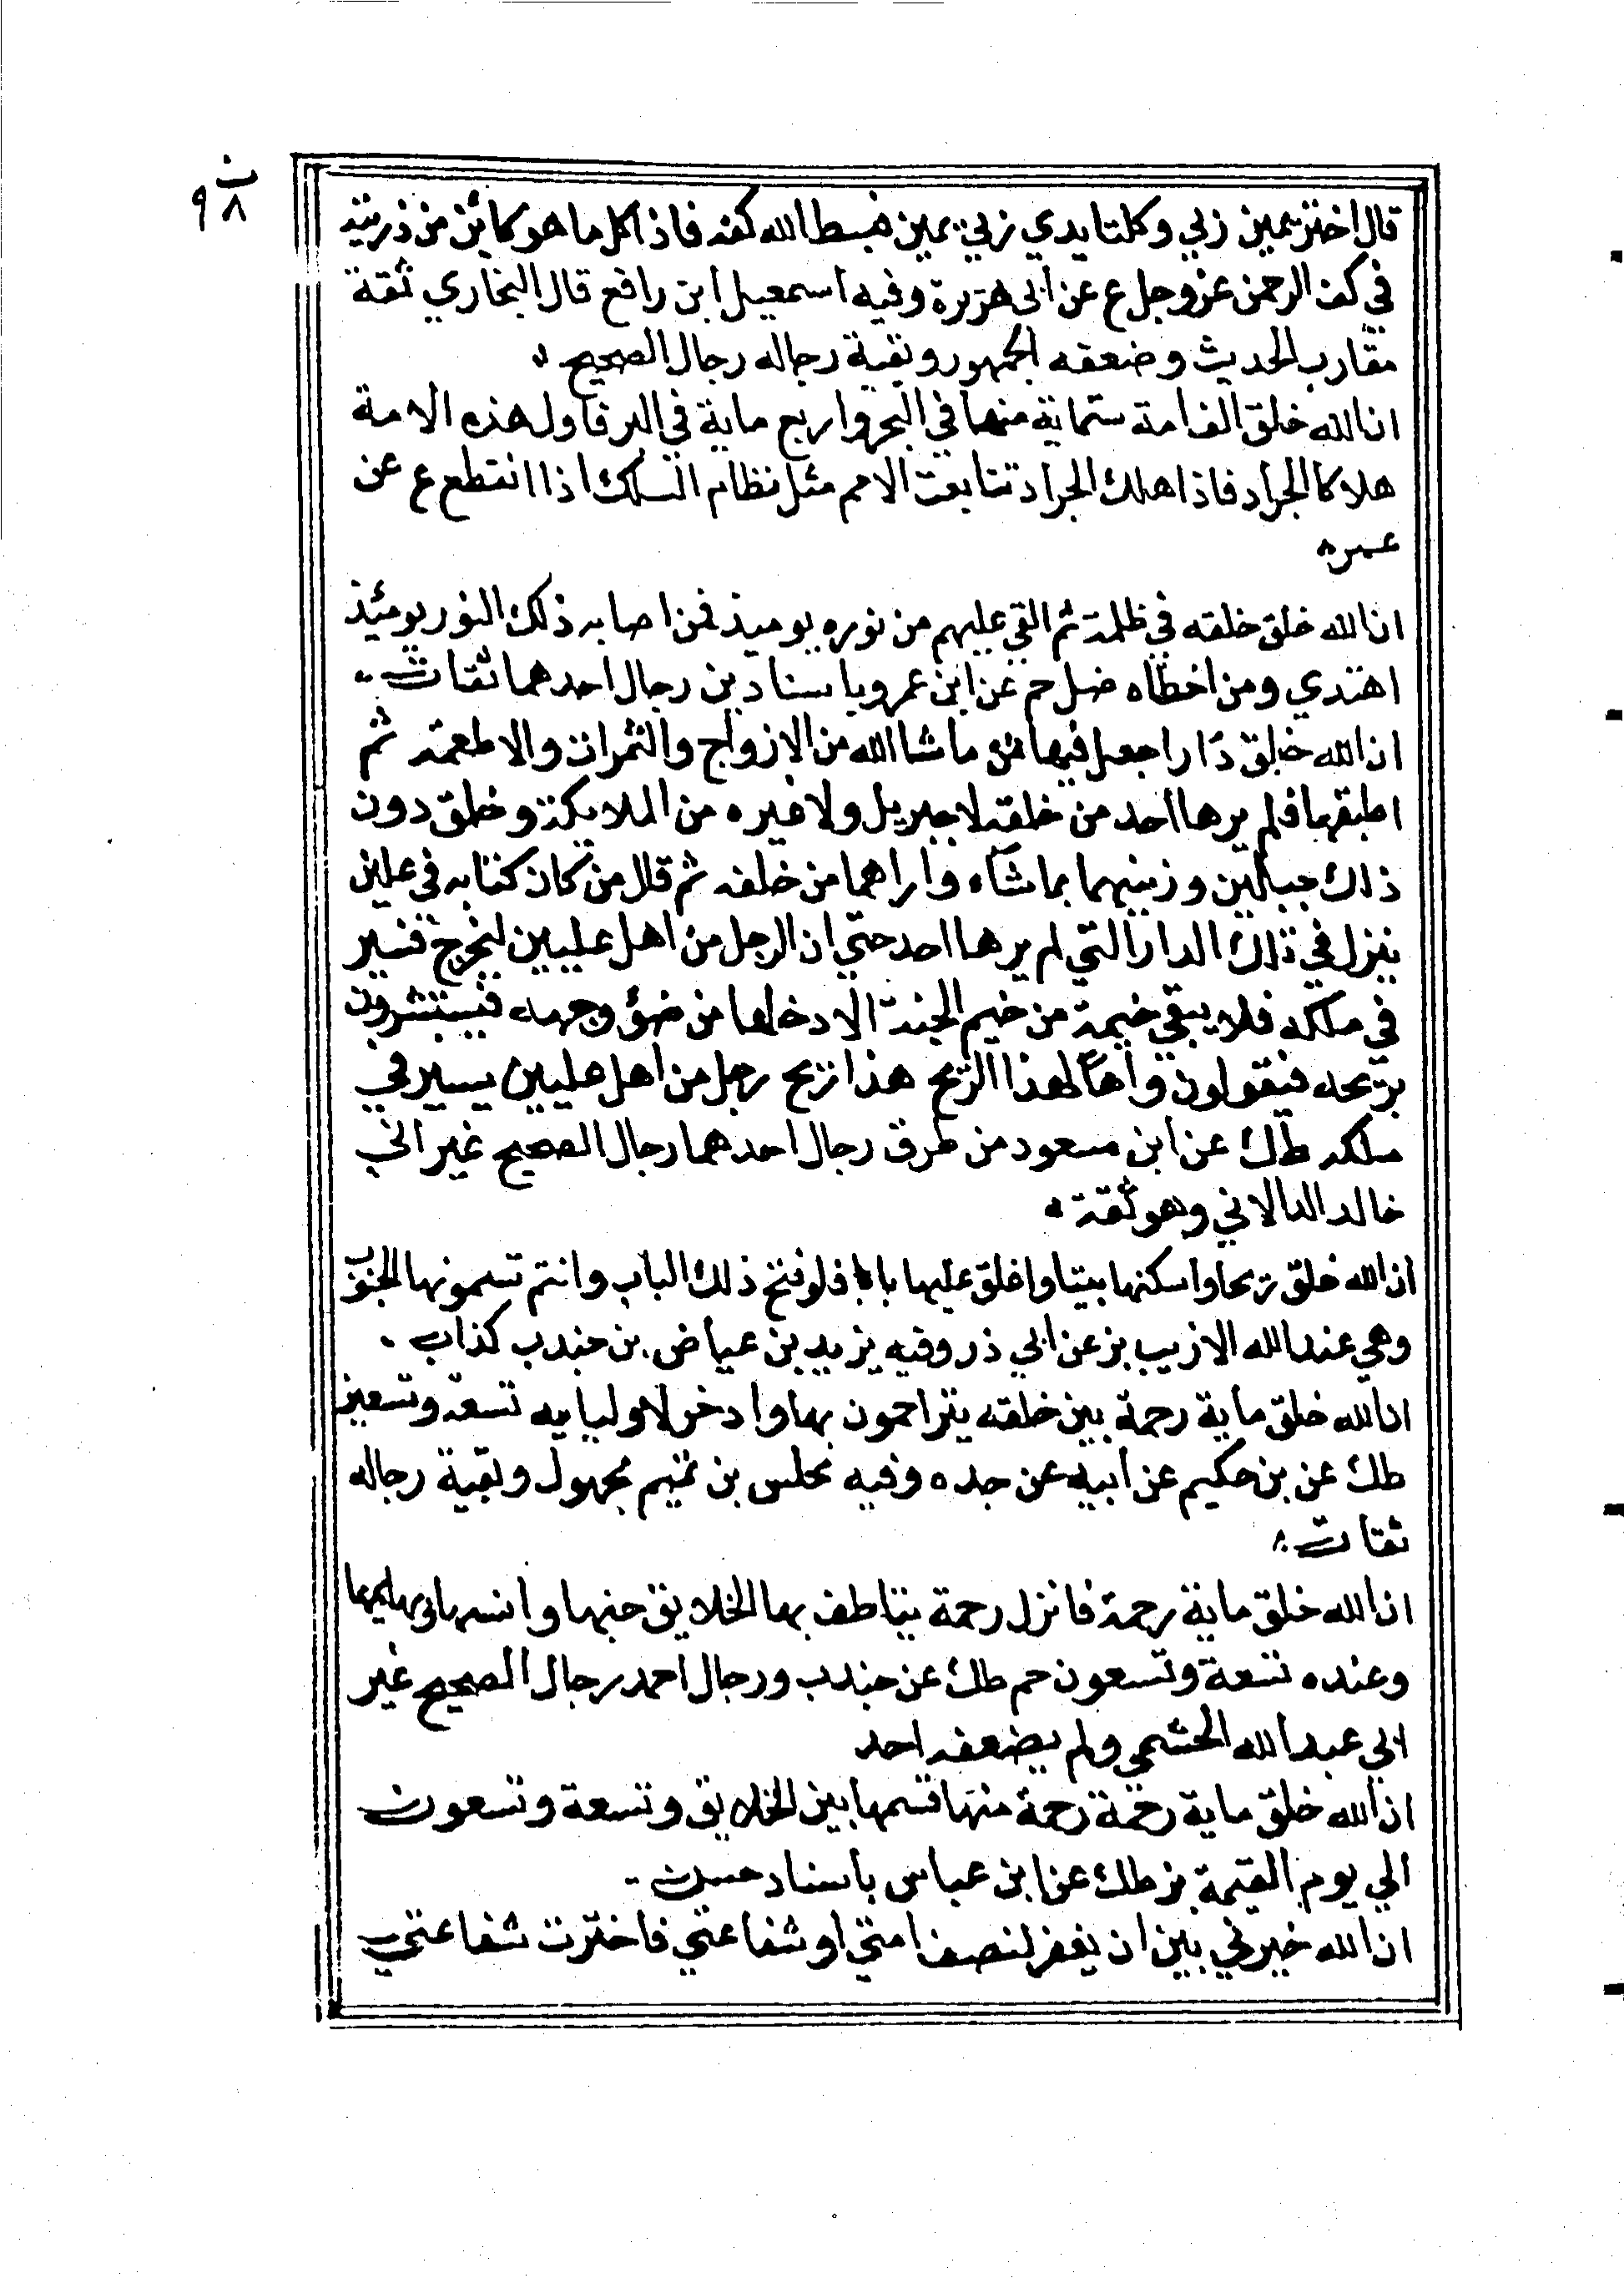 ن ٨ ٩
قال اخترت يمين ربي وكلتا يدي ربي يمين فبسط الله كفه فاذا كل ما هو كائن من ذريته
في كف الرحمن عزوجل ع عن ابي هريرة وفيه اسمعيل ابن رافع قال البخاري ثقة
مقارب الحديث وضعفه الجمهور وبقية رجاله رجال الصحيح
ان الله خلق الف امة ستماية منها في البحر واربع ماية في البر فاول هذه الامة
هلاكا الجراد فاذا اهلك الجراد تتابعت الامم مثل نظام السلك اذا انقطع ع عن
عمر
ان الله خلق خلقه في ظلمة ثم القي عليهم من نوره يوميذ فمن اصابه ذلك النور يوميئذ
اهتدي ومن اخطاه ضل حم عن ابن عمرو باسنادين رجال احدهما ثقات
ان الله خلق دارا جعل فيها من ماشا الله من الازواج والثمرات والاطعمة ثم
اطبقها فلم يرها احد من خلقه لا جبريل ولا غيره من الملايكة وخلق دون
ذلك جبالين وزينهما بما شاء واراهما من خلقه ثم قال من كان كتابه في علين
ينزل في تلك الدار التي لم يرها احد حتي ان الرجل من اهل عليين ليخرج فيسير
في ملكه فلا يبقي خيمة من خيم الجنة الا دخلها من ضؤ وجهه فيستبشرون
بريحه فيقولون واها لهذا الريح هذا ريح رجل من اهل عليين يسير في
ملكه طك عن ابن مسعود من طرق رجال احدهما رجال الصحيح غير ابي
خالد الدالاني وهو ثقة
ان الله خلق ريحا واسكنها بيتا واغلق عليها بابا فلو فتح ذلك الباب وانتم تسمونها الجنوب
وهي عند الله الازيب بز عن ابي ذر وفيه يزيد بن عياض بن جندب كذاب
ان الله خلق ماية رحمة بين خلقه يتراحمون بها وادخر لاوليايه تسعة وتسعين
طك عن بن حكيم عن ابيه عن جده وفيه مخلس بن تميم مجهول وبقية رجاله
ثقات
ان الله خلق ماية رحمة فانزل رحمة يتاطف بها الخلايق جنها وانسها وبهايمها
وعنده تسعة وتسعون حم طك عن جندب ورجال احمد رجال الصحيح غير
ابي عبد الله الجشمي ولم يضعفه احد
ان الله خلق ماية رحمة رحمة منها قسمها بين الخلايق وتسعة وتسعون
الي يوم القيمة بز طك عن ابن عباس باسناد حسن
ان الله خيرني بين ان يغفر لنصف امتي او شفاعتي فاخترت شفاعتي